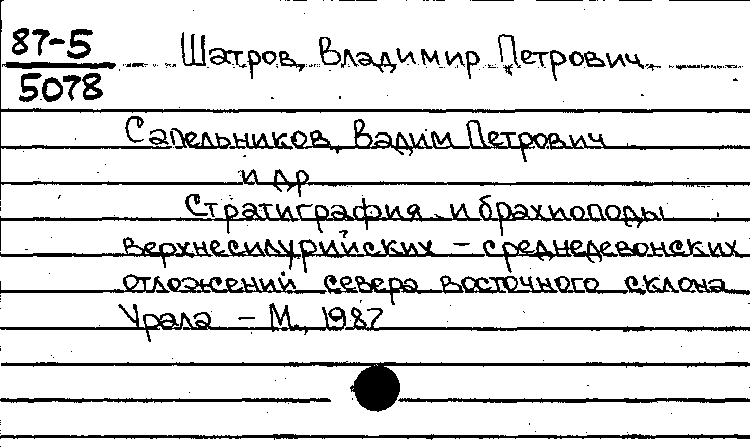 87-5
5078
Шатров, Владимир Петрович.
Сапельников, Вадим Петрович
и др
Стратиграфия и брахиоподы
верхнесилурийских - среднедевонских
отложений севера восточного склона
Урала - М., 1987